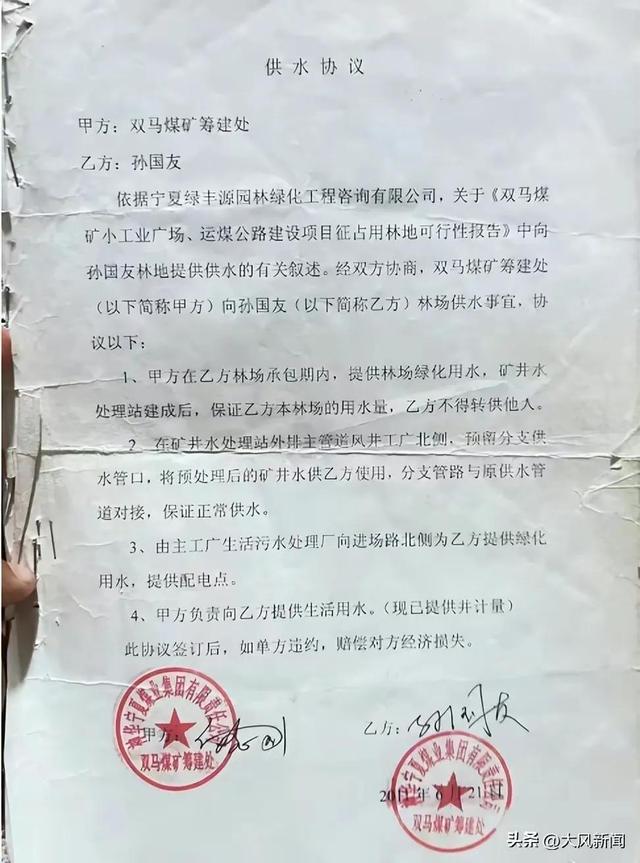 供水协议
甲方：双马煤矿筹建处
乙方：孙国友
依据宁夏绿丰源园林绿化工程咨询有限公司，关于《双马煤
矿小工业广场、运煤公路建设项目征占用林地可行性报告》中向
孙国友林地提供供水的有关叙述。经双方协商，双马煤矿筹建处
（以下简称甲方）向孙国友（以下简称乙方）林场供水事宜，协
议以下：
1、甲方在乙方林场承包期内，提供林场绿化用水，矿井水
处理站建成后，保证乙方本林场的用水量，乙方不得转供他人。
2、在矿井水处理站外排主管道风井工广北侧，预留分支供
水管口，将预处理后的矿井水供乙方使用，分支管路与原供水管
道对接，保证正常供水。
3、由主工广生活污水处理厂向进场路北侧为乙方提供绿化
用水，提供配电点。
4、甲方负责向乙方提供生活用水。（现已提供井计量）
此协议签订后，如单方违约，赔偿对方经济损失。
甲方：
乙方：孙国友
神华宁夏煤业集团有限责任公司
双马煤矿筹建处
2011年6月21日
神华宁夏煤业集团有限责任公司
双马煤矿筹建处
头条 @大风新闻